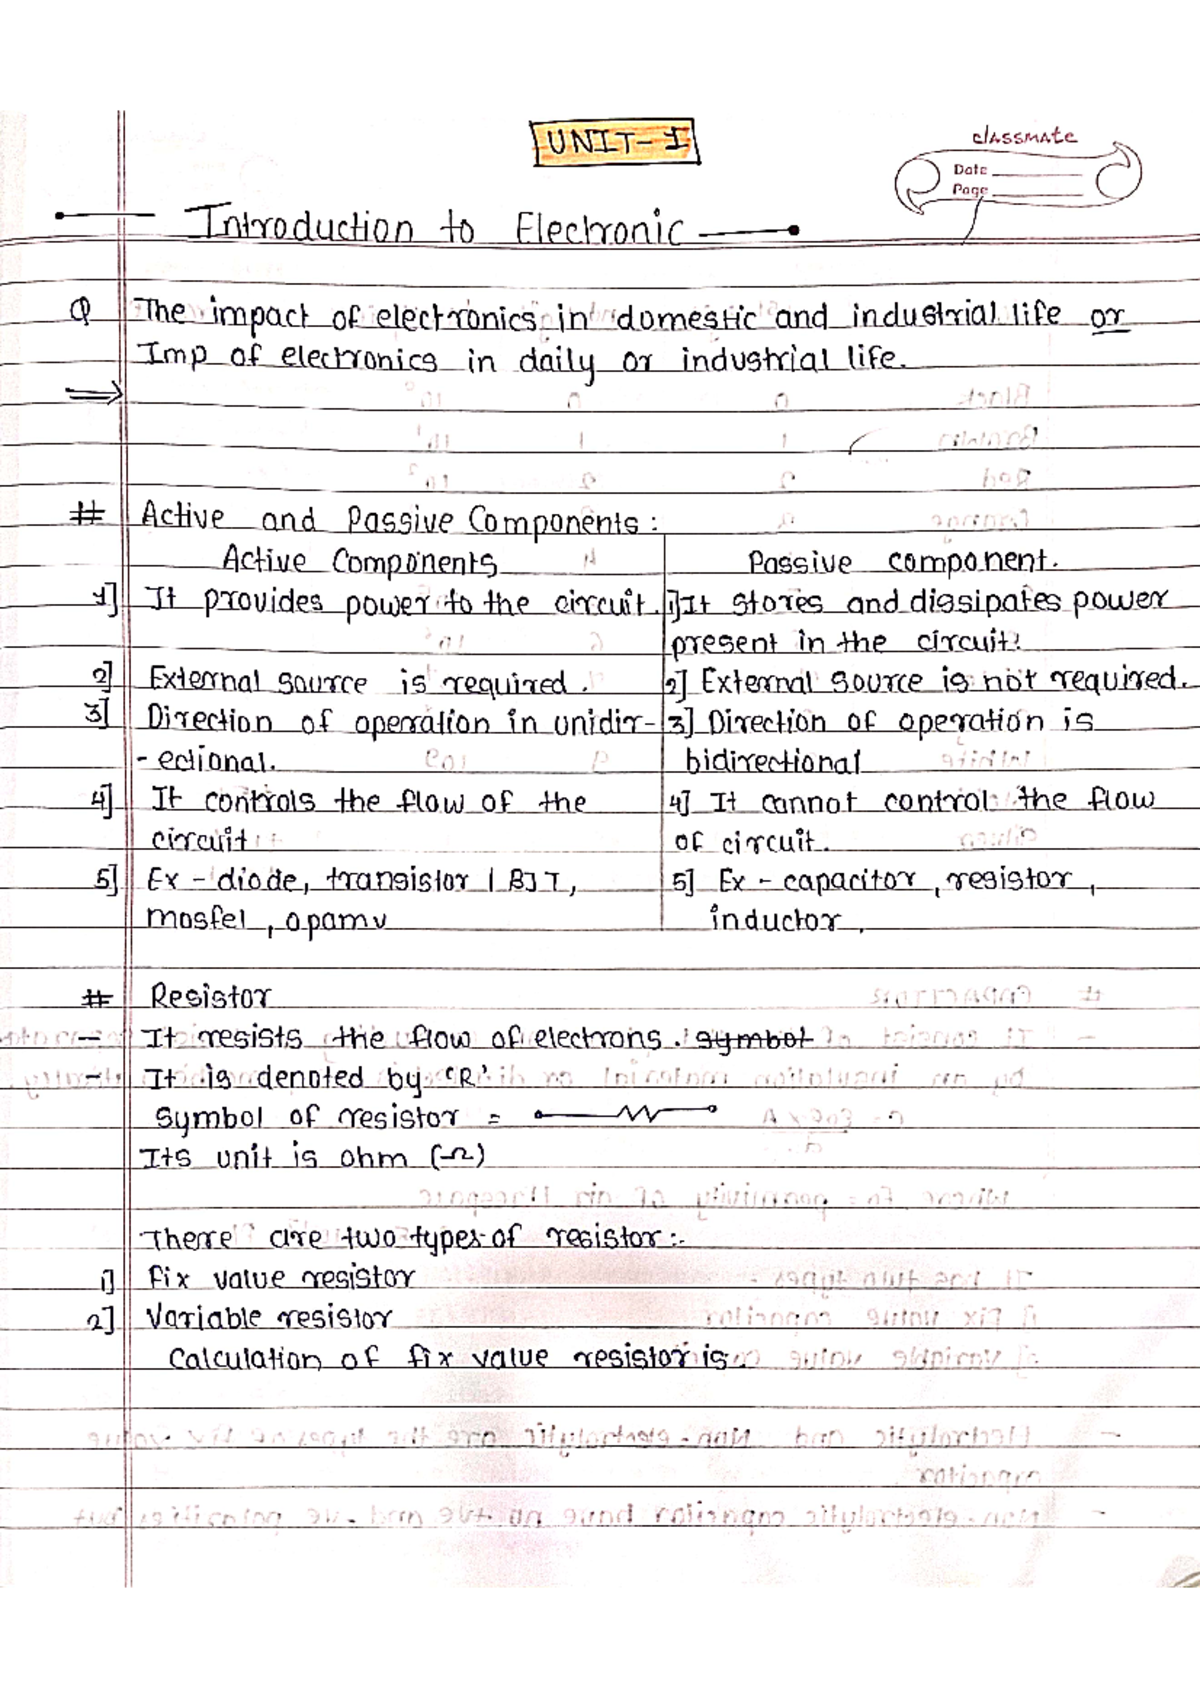 UNIT-1
classmate
Date
Page
Introduction to Electronic
Q The impact of electronics in domestic and industrial life or
Imp of electronics in daily or industrial life.
⇒
# Active and Passive Components:
Active Components
Passive component.
1] It provides power to the circuit.
1] It stores and dissipates power
present in the circuit.
2] External source is required.
2] External source is not required.
3] Direction of operation in unidir-
-ectional.
3] Direction of operation is
bidirectional
4] It controls the flow of the
circuit
4] It cannot control the flow
of circuit.
5] Ex - diode, transistor | BJT,
mosfel, opamv
5] Ex - capacitor, resistor,
inductor.
# Resistor
- It resists the flow of electrons. symbol
- It is denoted by 'R'
Symbol of resistor =
Its unit is ohm (Ω)
There are two types of resistor:-
1] fix value resistor
2] Variable resistor
Calculation of fix value resistor is.